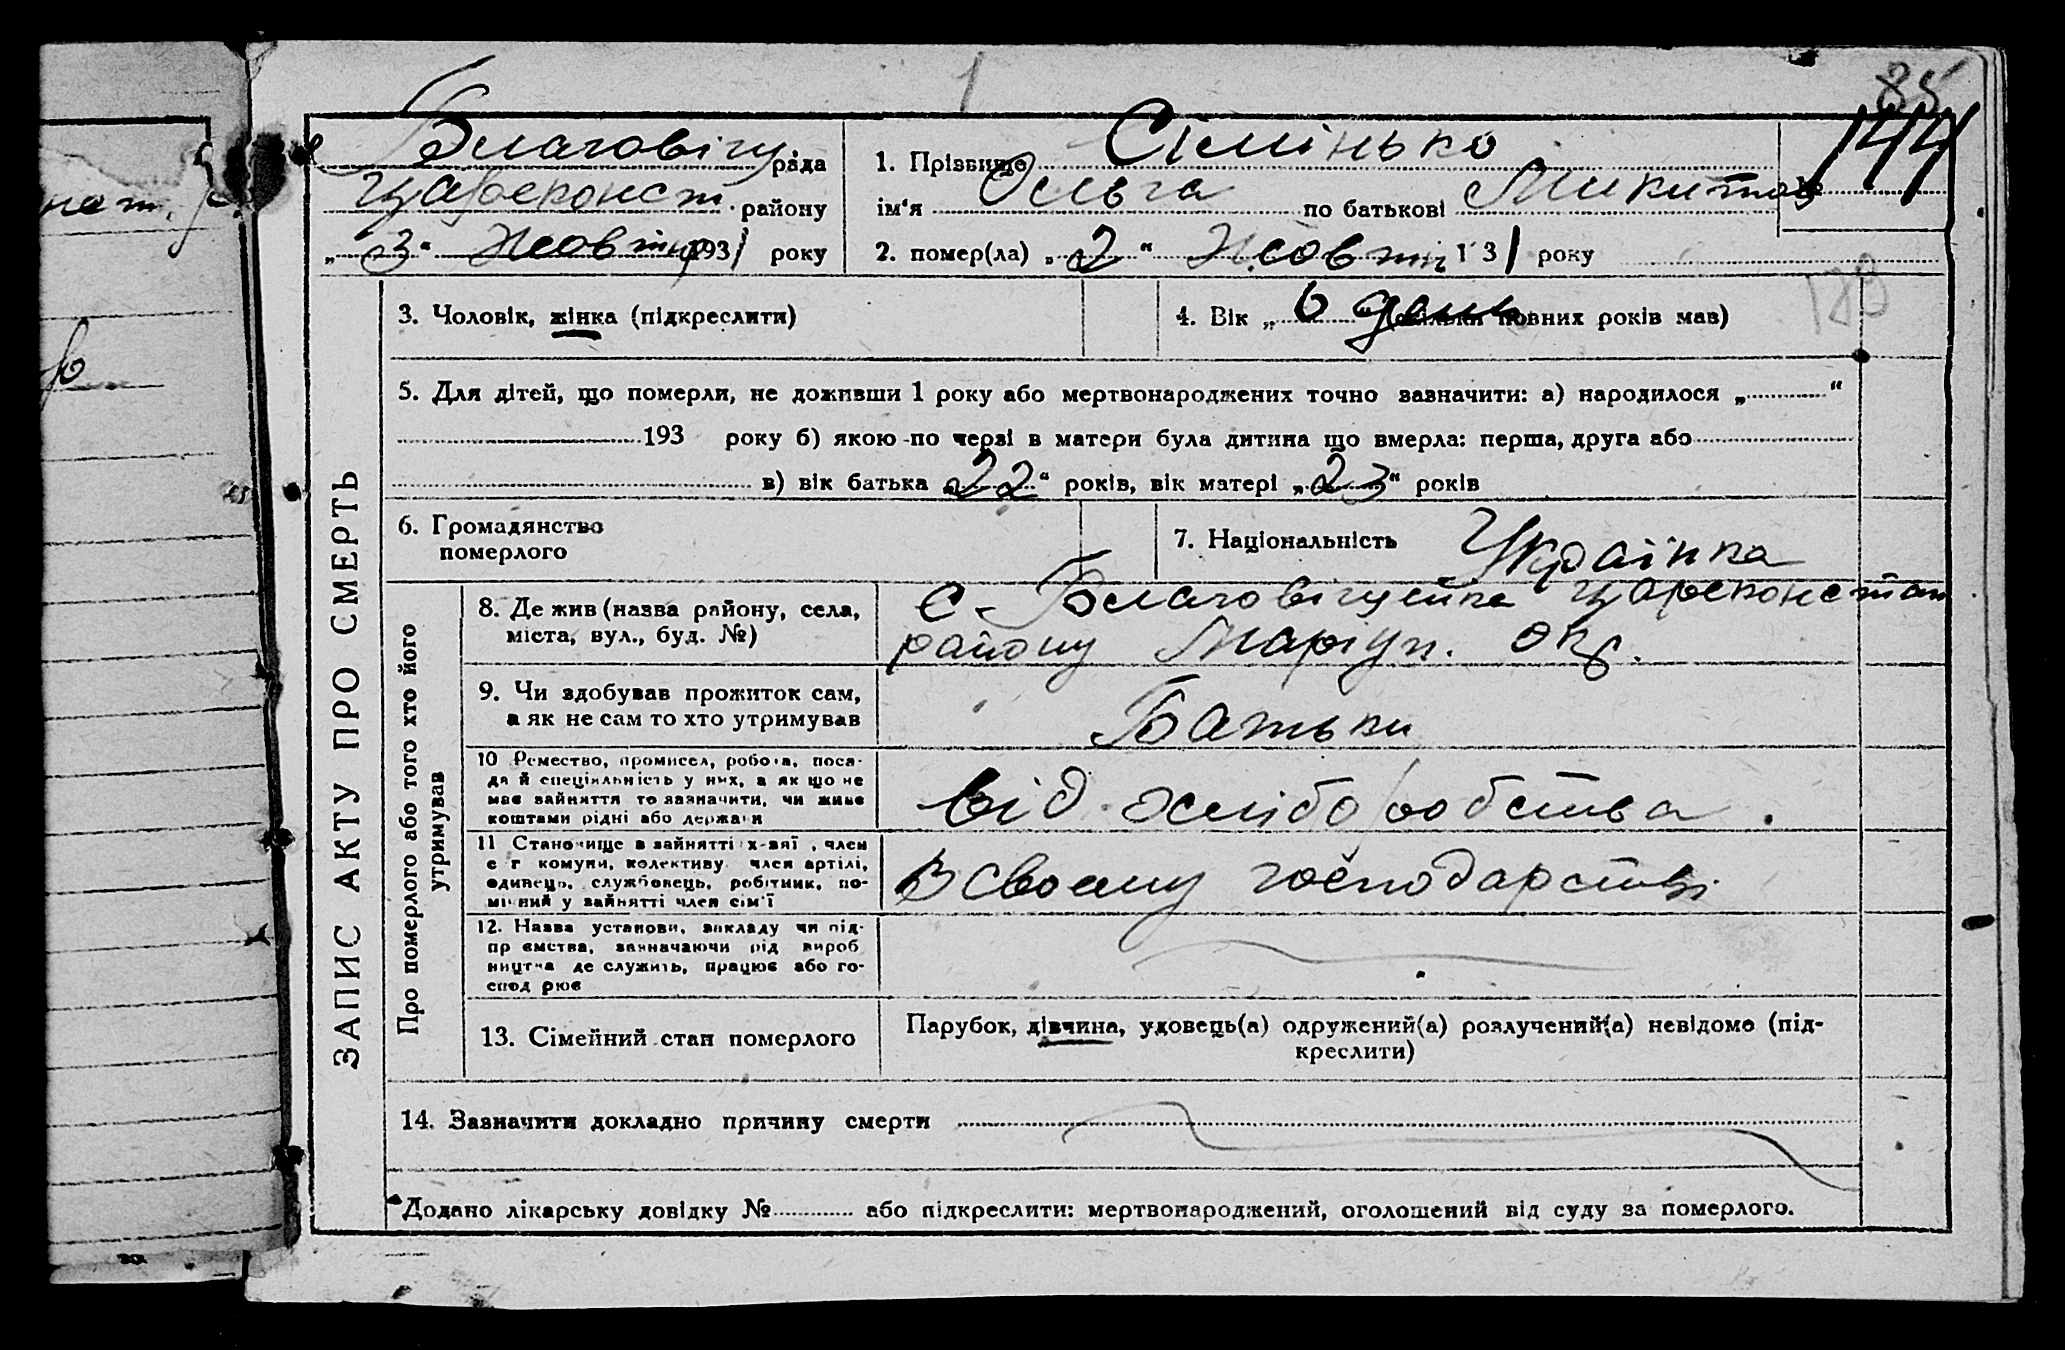 85
144
Благовіщ рада
Цареконст. району
„3“ Жовтня 1931 року
1. Прізвище Сімінько
ім'я Ольга по батькові Микитов
2. помер(ла) „2“ Жовтня 1 31 року
180
ЗАПИС АКТУ ПРО СМЕРТЬ
3. Чоловік, жінка (підкреслити)
4. Вік „6 день (скільки повних років мав)
5. Для дітей, що померли, не доживши 1 року або мертвонароджених точно зазначити: а) народилося „ “
193 року б) якою по черзі в матери була дитина що вмерла: перша, друга або
в) вік батька „22“ років, вік матері „23“ років
6. Громадянство
померлого
7. Національність Українка
Про померлого або того хто його
утримував
8. Де жив (назва району, села,
міста, вул., буд. №)
с. Благовіщенка Цареконстан
району Маріуп. окр.
9. Чи здобував прожиток сам,
а як не сам то хто утримував
Батьки
10 Ремество, промисел, робота, поса-
да й спеціяльність у них, а як що не
має зайняття то зазначити, чи живе
коштами рідні або держави
від хліборобства.
11 Становище в зайнятті х-вяї, член
с г комуни, колективу член артілі,
одинець, службовець, робітник, по-
мічний у зайнятті член сім'ї
В своєму господарстві
12. Назва установи, закладу чи під-
пр ємства, зазначаючи рід вироб
ництва де служить, працює або го-
спод рює
13. Сімейний стан померлого
Парубок, дівчина, удовець(а) одружений(а) розлучений(а) невідомо (під-
креслити)
14. Зазначити докладно причину смерти
Додано лікарську довідку № або підкреслити: мертвонароджений, оголошений від суду за померлого.